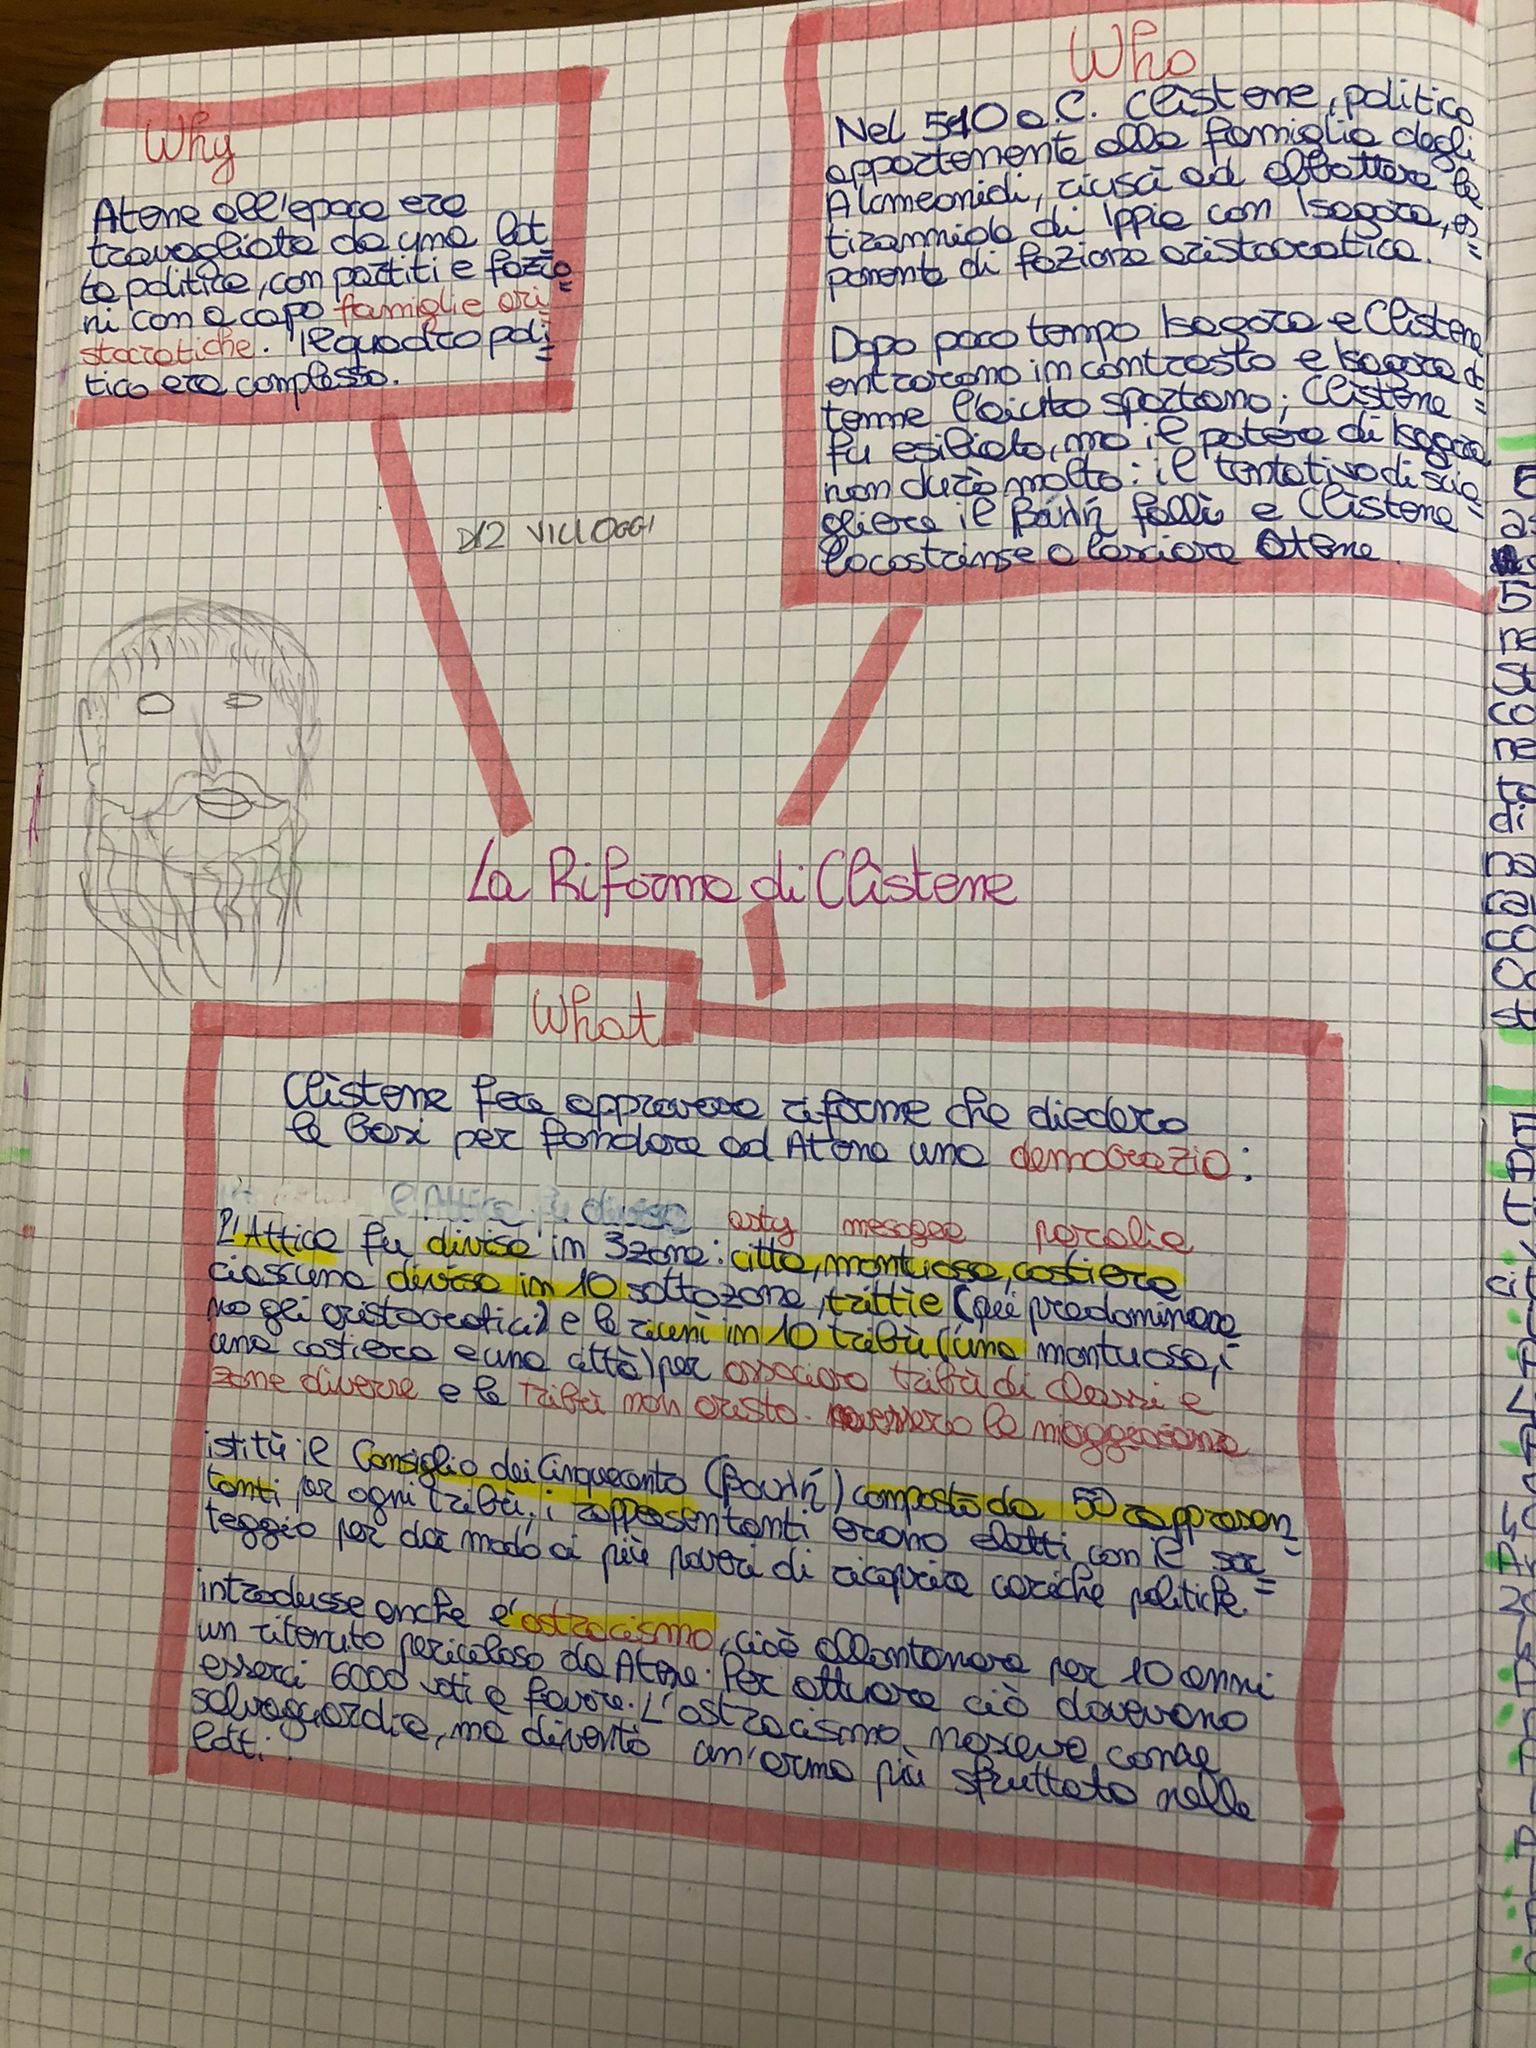 Why
Atene all'epoca era
travagliata da una lot
ta politica, con partiti e fazio=
ni con a capo famiglie ari=
stocratiche. Il quadro poli=
tico era complesso.
Who
Nel 510 a.C. Clistene, politico
appartenente alla famiglia degli
Alcmeonidi, riuscì ad abbattere la
tirannide di Ippia con Isagora, es=
ponente di fazione aristocratica.
Dopo poco tempo Isagora e Clistene
entrarono in contrasto e Isagora ot
tenne l'aiuto spartano; Clistene =
fu esiliato, ma il potere di Isagora
non durò molto: il tentativo di scio=
gliere il βουλή fallì e Clistene
lo costrinse a lasciare Atene.
La Riforma di Clistene
What
Clistene fece approvare riforme che diedero
le basi per fondare ad Atene una democrazia:
l'Attica fu divisa asty mesogea paralia
L'Attica fu divisa in 3 zone: città, montuosa, costiera
ciascuna divisa in 10 sottozone, trittie (qui predominava
no gli aristocratici) e le riunì in 10 tribù (una montuosa,
una costiera e una città) per associare tribù di classi e
zone diverse e le tribù non aristo. avessero la maggioranza
istituì il Consiglio dei Cinquecento (βουλή) composto da 50 rappresen=
tanti per ogni tribù, i rappresentanti erano eletti con il sor=
teggio per dar modo ai più poveri di ricoprire cariche politiche.
introdusse anche l'ostracismo, cioè allontanare per 10 anni
un ritenuto pericoloso da Atene. Per attuare ciò dovevano
esserci 6000 voti a favore. L'ostracismo nasceva come
salvaguardia, ma diventò un'arma più sfruttata nelle
lotte.